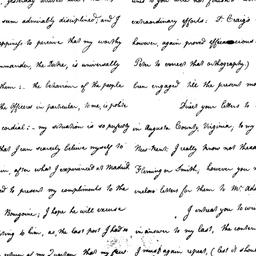 seem admirably disciplined, and I
happy to perceive that my worthy
mmander, the Duke, is universally
them: - the behaviour of the people
the Officers in particular, to me, is polite
cordial; - my situation is so perfectly
that I can scarcely believe myself to
in, after what I experienced at Madrid
d to present my compliments to the
Bourgoine; I hope he will excuse
writing to him, as, the last post I had so
extraordinary efforts: St. Craig's
however, again proved efficacious
Peter to correct that orthography.)
been engaged till the present mo
Direct your letters to
in Augusta County, Virginia, to my
I really know not
Fleming or Smith, however you
letters for them to Mr. Ad
I entreat you to
in my last, the conten
I must again repeat, (lest it shou